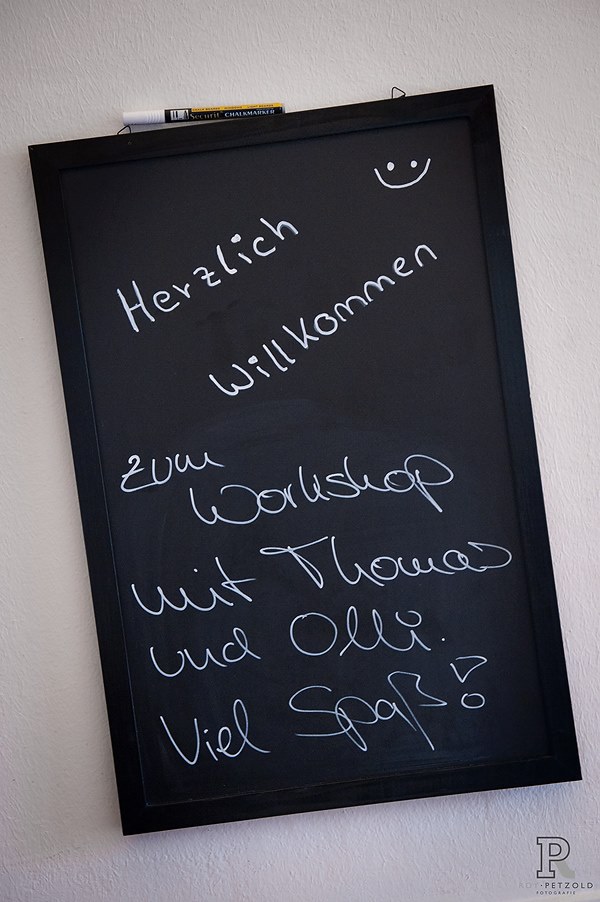 Securit CHALKMARKER
Herzlich
Willkommen
zum
Workshop
mit Thomas
und Olli.
Viel Spaß!
PETZOLD
FOTOGRAFIE